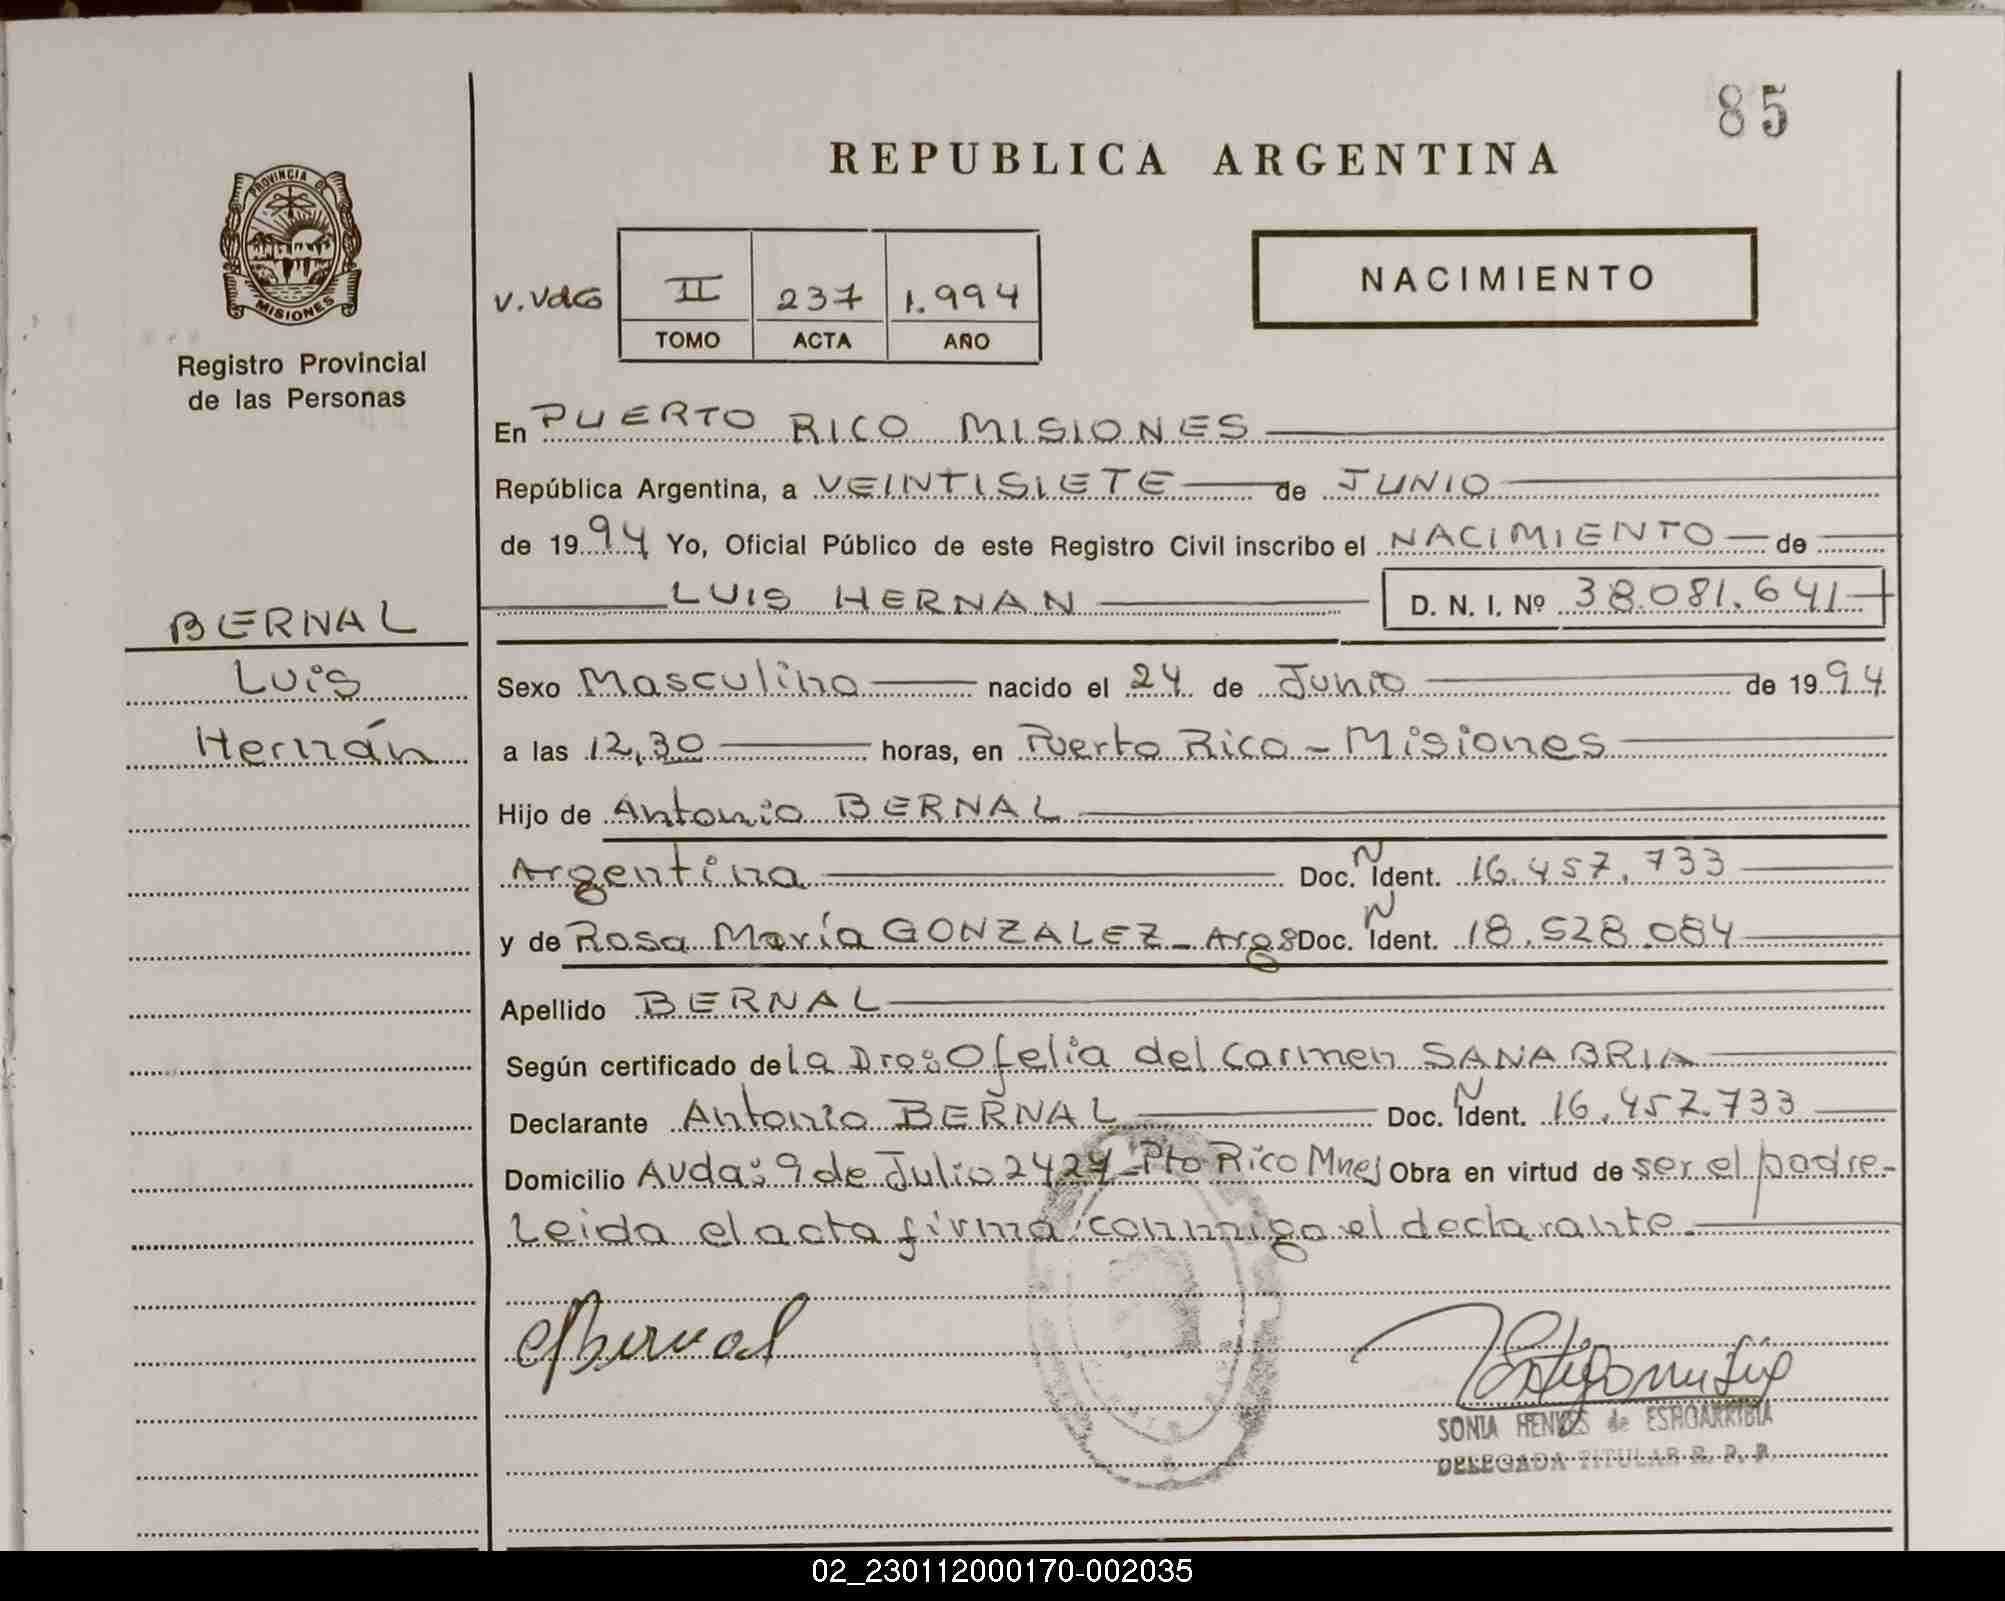 85
REPUBLICA ARGENTINA
PROVINCIA DE
MISIONES
Registro Provincial
de las Personas
V. Vdo
II 237 1.994
TOMO ACTA AÑO
NACIMIENTO
En PUERTO RICO MISIONES
República Argentina, a VEINTISIETE de JUNIO
de 1994 Yo, Oficial Público de este Registro Civil inscribo el NACIMIENTO de
LUIS HERNAN D. N. I. Nº 38.081.641
BERNAL
Luis
Hernán
Sexo Masculino nacido el 24 de Junio de 1994.
a las 12,30 horas, en Puerto Rico - Misiones
Hijo de Antonio BERNAL
Argentina Doc. Ñ Ident. 16.457.733
y de Rosa María GONZALEZ - Arg: Doc. Ñ Ident. 18.528.084
Apellido BERNAL
Según certificado de la Dra: Ofelia del Carmen SANABRIA
Declarante Antonio BERNAL Doc. Ñ Ident. 16.457.733
Domicilio Avda: 9 de Julio 2424 - Pto Rico Mnes Obra en virtud de ser el padre -
Leida el acta firma conmigo el declarante.
Bernal
SONIA HENKES de ESTIGARRIBIA
DELEGADA TITULAR R. P. P.
02_230112000170-002035